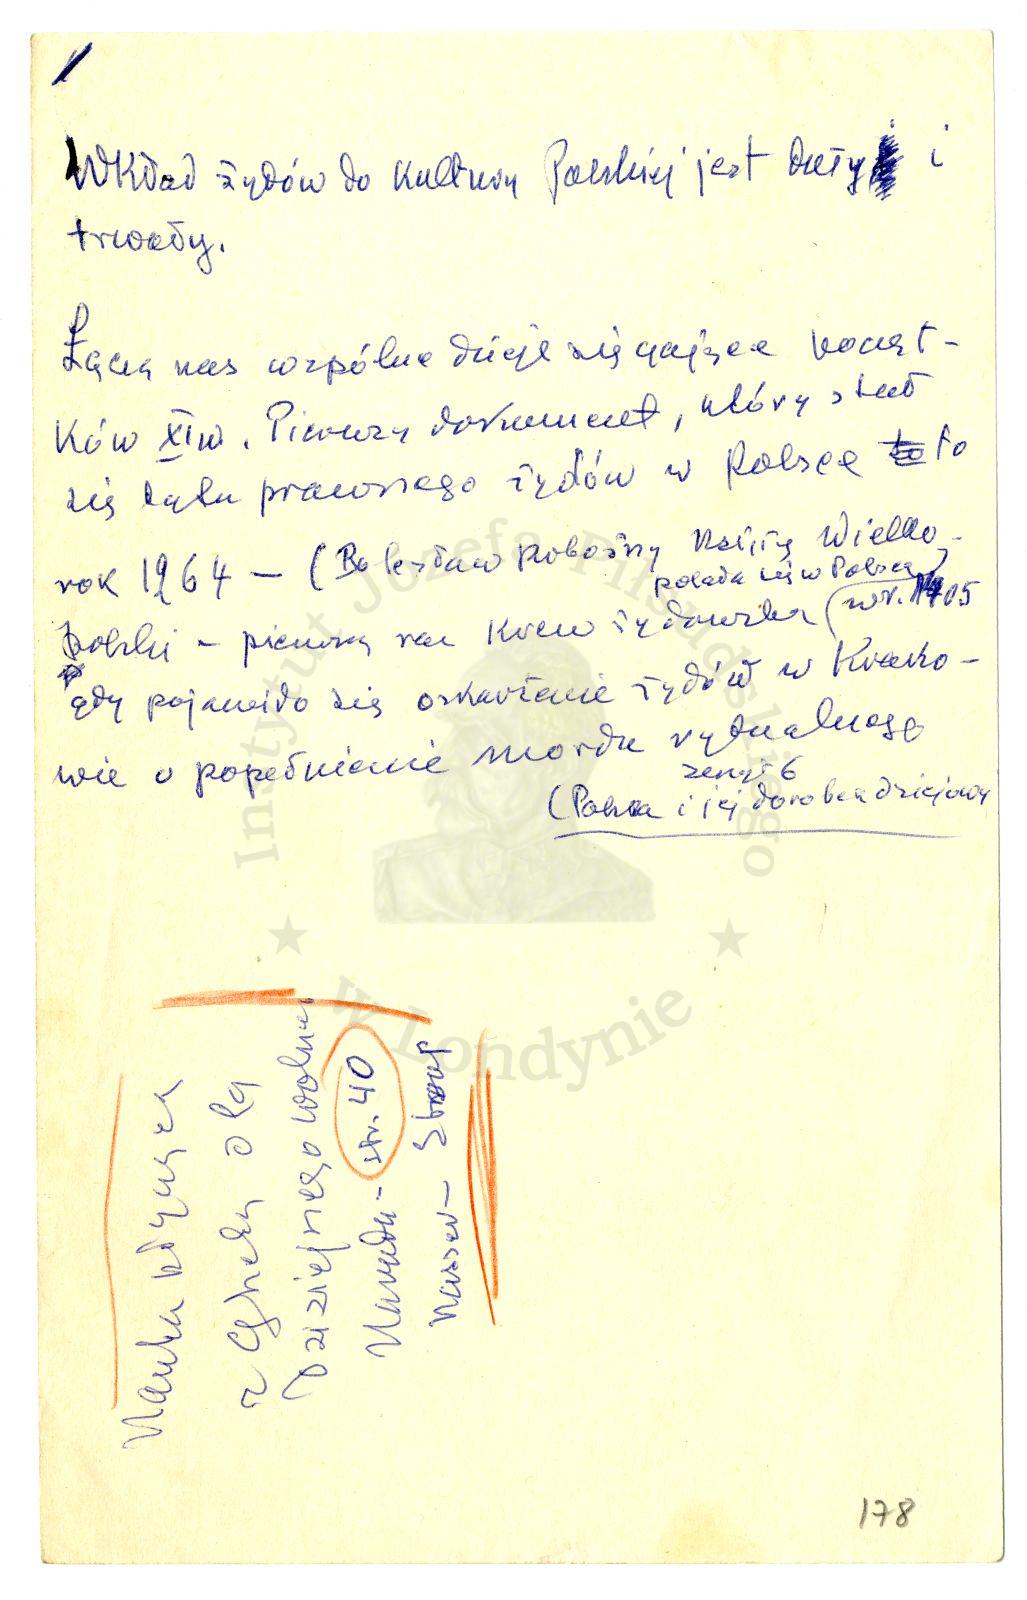 Wkład żydów do kultury Polskiej jest duży i
trwały.
Łączą nas wspólne dzieje sięgające począt-
ków XI w. Pierwszy dokument, który stał
się tytu prawnego żydów w Polsce to to
rok 1964 – (Bolesław Pobożny Książę Wielko-
polski – pierwszą raz krew żydowska (w r. 1405
polała się w Polsce)
gdy pojawiło się oskarżenie żydów w Krako-
wie o popełnienie mordu rytualnego
zeszyt 6
(Polska i jej dorobek dziejowy
Nauka płynąca
z Getta dla
Dzisiejszego
Narodu – str. 40
Nasser –
178
Instytut Józefa Piłsudskiego
w Londynie